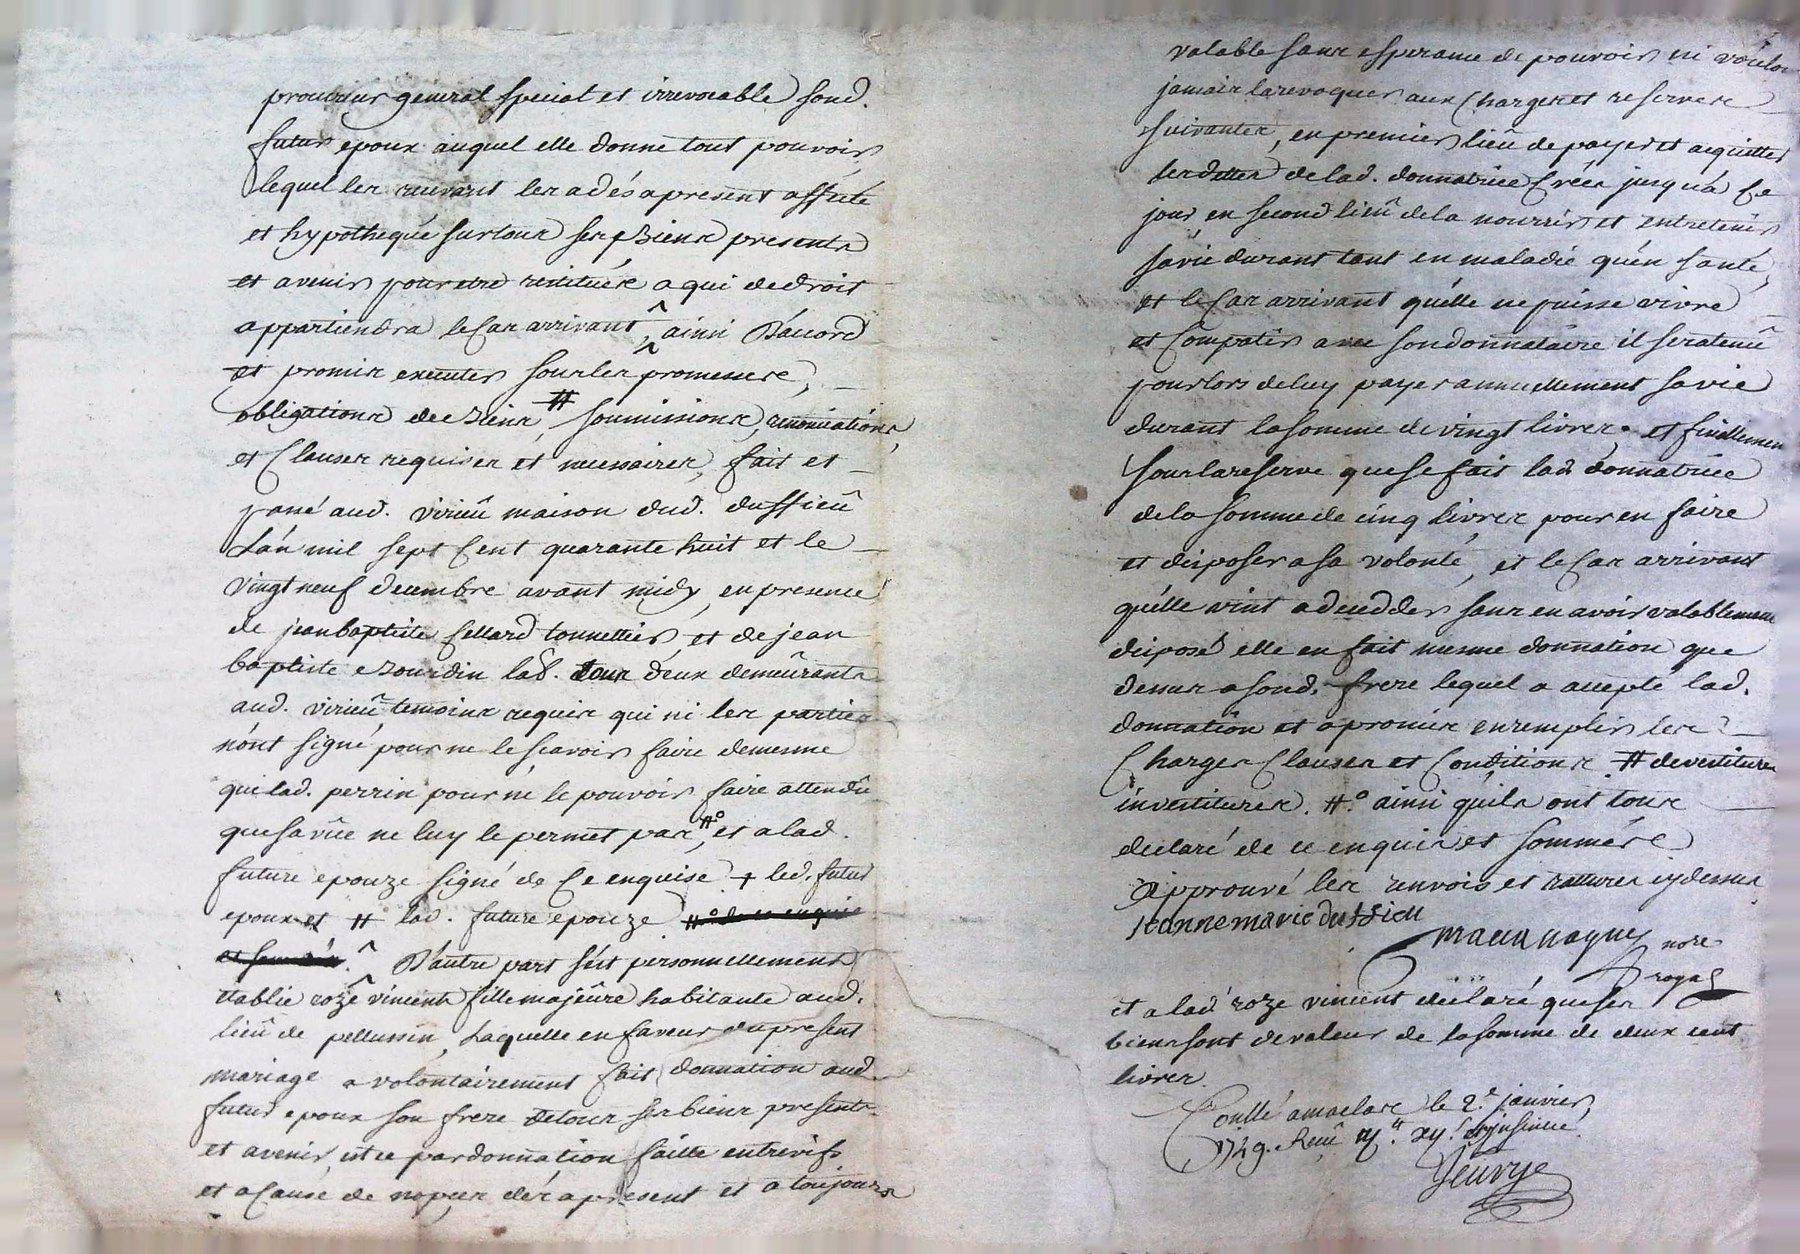 procureur general special et irrevocable sond.
futur epoux auquel elle donne tout pouvoir
lequel les recevant les a dés a present affecté
et hypothequé sur tous ses Biens presents
et avenir pour etre restituées a qui de droit
appartiendra le Cas arrivant, ainsi D'accord
et promis executer sous les promesses,
obligations de Biens, # soumissions, renonciations,
et Clauses requises et necessaires, fait et
passé aud. virieû maison dud. dussieû
L'an mil sept Cent quarante huit et le
vingt neuf decembre avant midy, en presence
de jean baptiste Cellard tonnellier, et de jean
baptiste Bourdin lab. tous deux demeûrants
aud. virieû temoins requis qui ni les parties
n'ont signé pour ne le sçavoir faire de mesme
qui lad. perrin pour ne le pouvoir faire attendû
que sa vûe ne luy le permet pas, #° et a lad.
future epouze signé de Ce enquise + led. futur
epoux et # lad. future epouze #° de ce enquis
et sommés. D'autre part s'est personnellement
etablie roze vincent fille majeûre habitante aud.
lieû de pellussin, Laquelle en faveur du present
mariage a volontairement fait donnation aud.
futur epoux son frere de tous ses biens presents
et avenir, et ce par donnation faitte entre vifs
et a Cause de nopces dés a present et a toujours
valable sans esperance de pouvoir ni vouloir
jamais la revoquer aux Charges et reserves
suivantes, en premier lieû de payer et acquitter
les dettes de lad. donnatrice Créés jusqu'a Ce
jour, en second lieû de la nourrir et entretenir
sa vie durant tant en maladie qu'en santé,
et le Cas arrivant qu'elle ne puisse vivre
et Compatir avec son donnataire il sera tenû
pour lors de luy payer annuellement sa vie
durant la somme de vingt livres, et finallement
sous la reserve que se fait lad. donnatrice
de la somme de cinq livres pour en faire
et disposer a sa volonté, et le Cas arrivant
qu'elle vint a decedder sans en avoir valablement
disposé elle en fait mesme donnation que
dessus a sond. frere lequel a accepté lad.
donnation et a promis en remplir les
Charges Clauses et Conditions # devestitures
investitures. #° ainsi qu'ils ont tous
declaré de ce enquis et sommés
approuvé les renvois et ratures cy dessus
jeanne marie dussieu
nore
royal
et a lad. roze vincent declaré que ses
biens sont de valeur de la somme de deux cent
livres
Conllé a maclas le 2e janvier
1749. Reçu et insinué